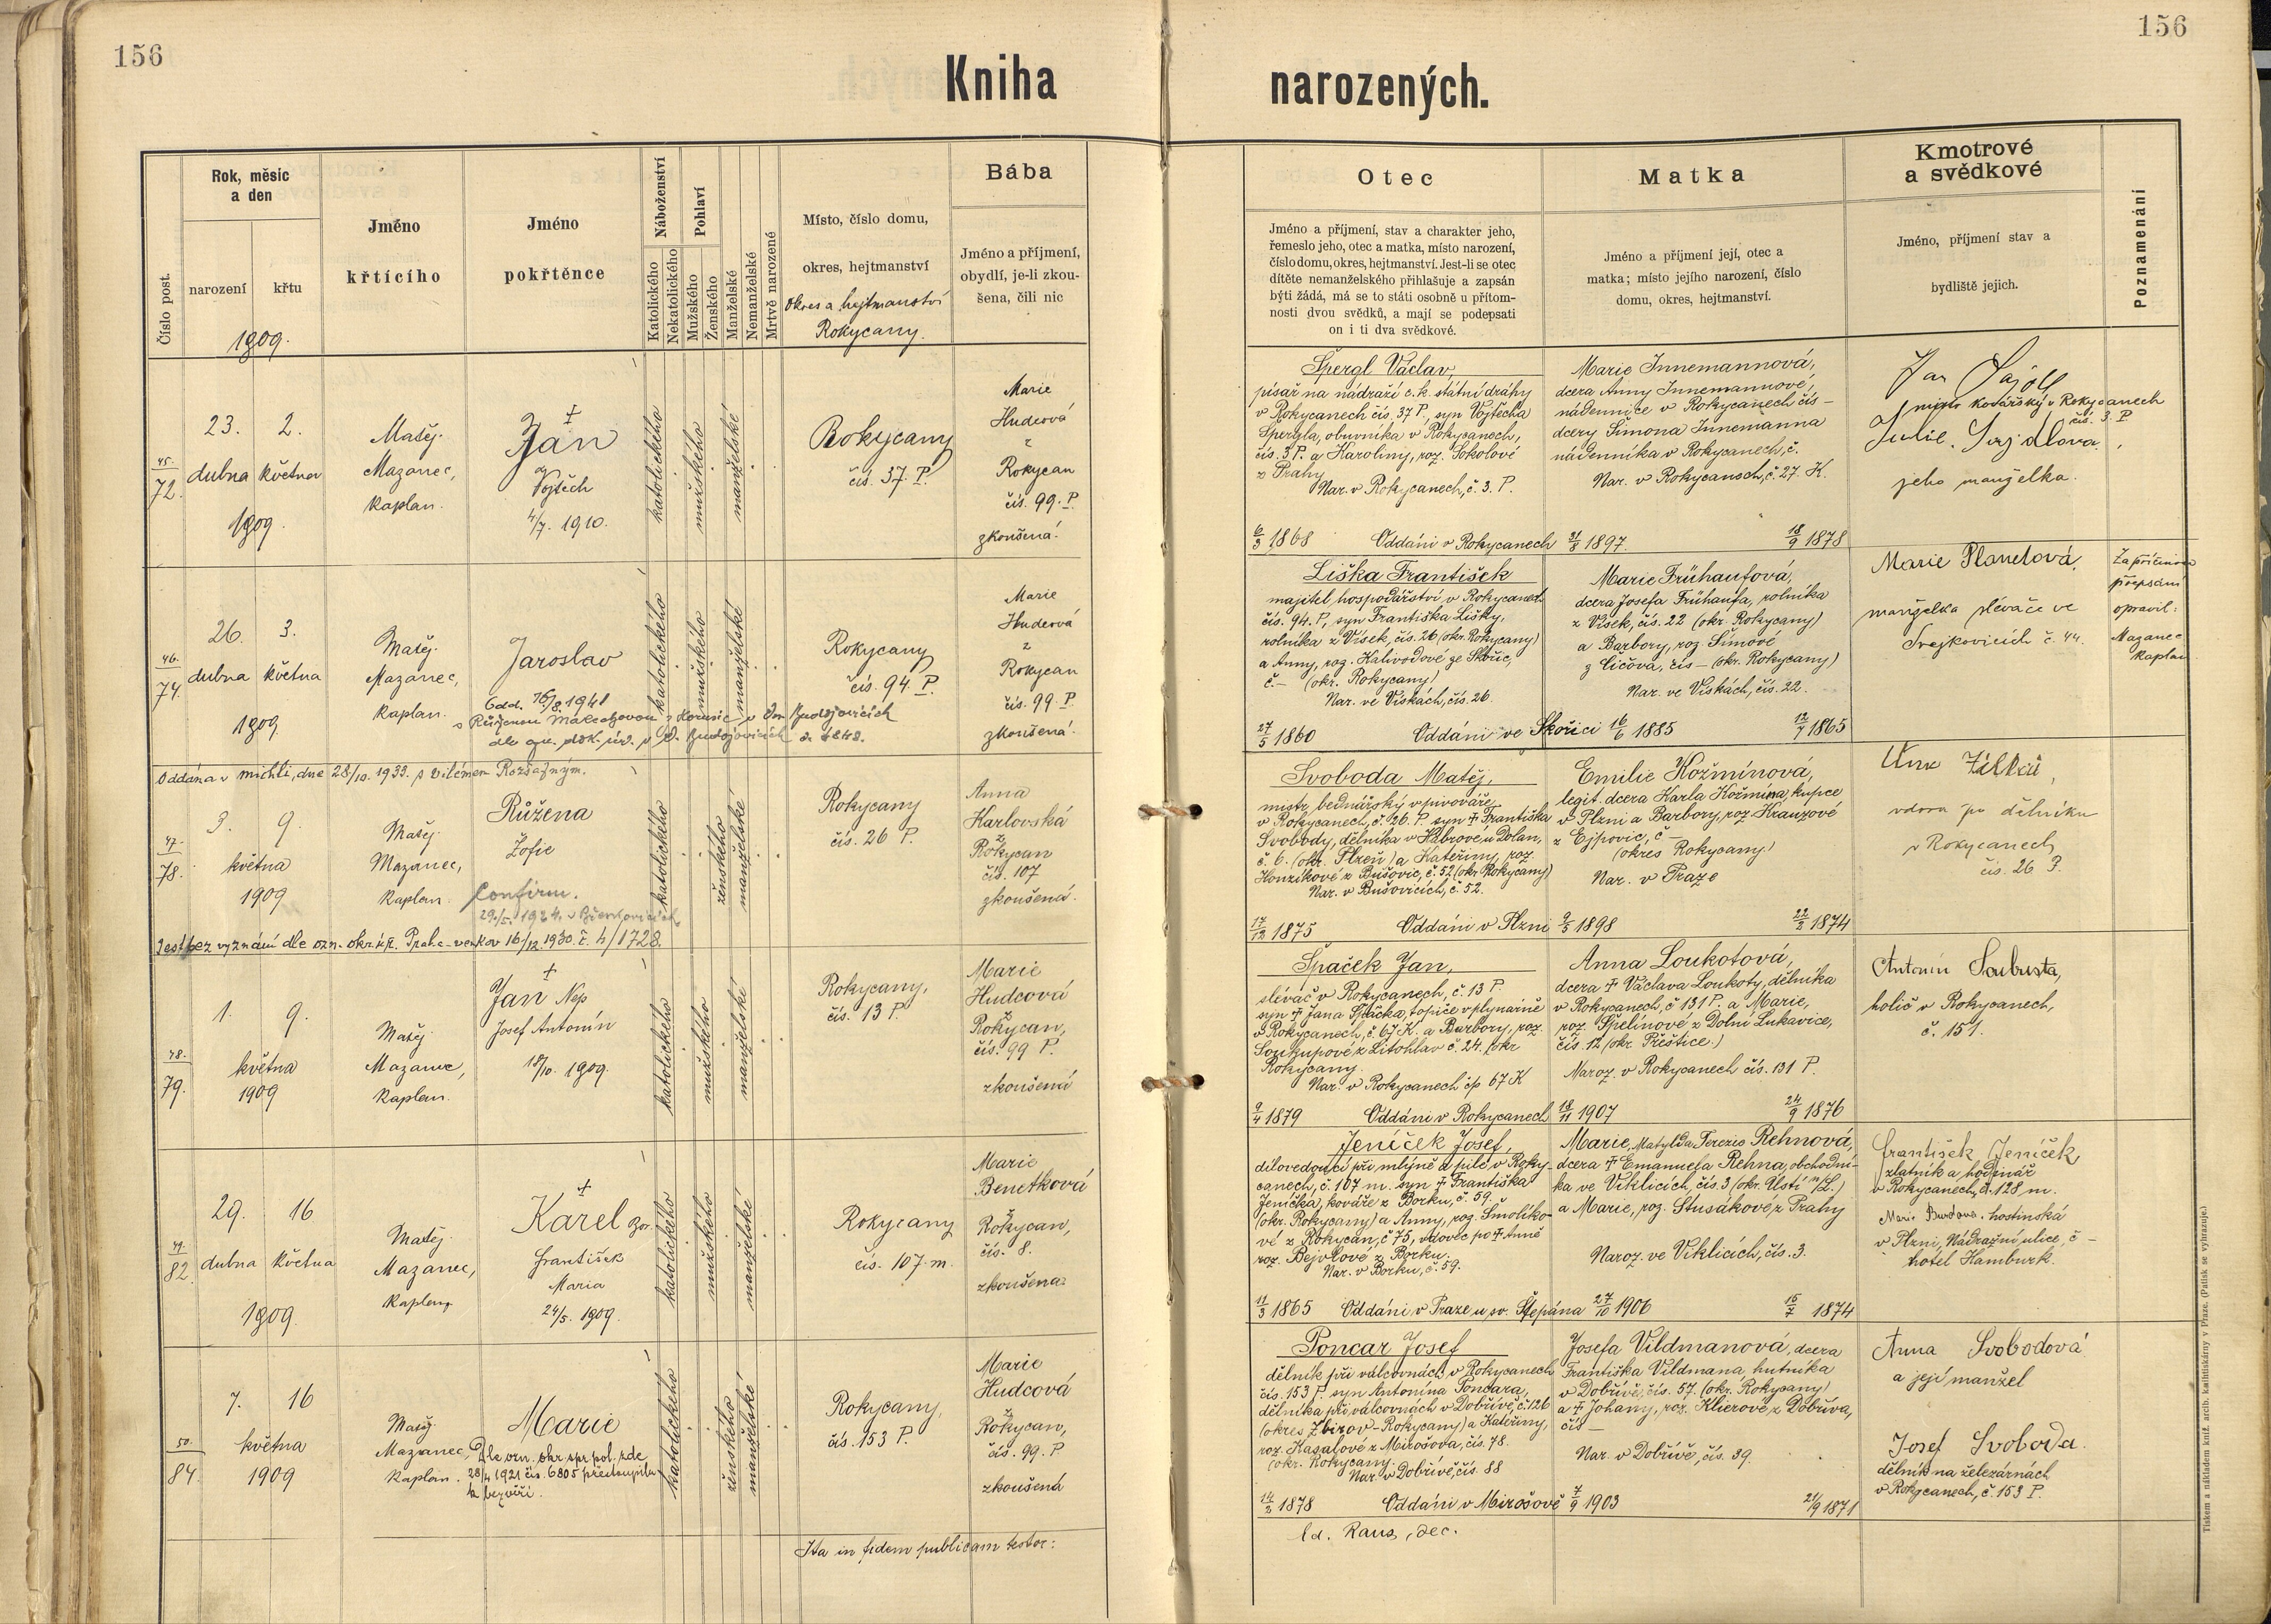 156
156
Kniha
narozených.
Číslo post.
Rok, měsíc
a den
narození
křtu
1909.
Jméno
křtícího
Jméno
pokřtěnce
Náboženství
Katolického
Nekatolického
Pohlaví
Mužského
Ženského
Manželské
Nemanželské
Mrtvě narozené
Místo, číslo domu,
okres, hejtmanství
Okres a hejtmanství
Rokycany.
Bába
Jméno a příjmení,
obydlí, je-li zkou-
šena, čili nic
Otec
Jméno a příjmení, stav a charakter jeho,
řemeslo jeho, otec a matka, místo narození,
číslo domu, okres, hejtmanství. Jest-li se otec
dítěte nemanželského přihlašuje a zapsán
býti žádá, má se to státi osobně u přítom-
nosti dvou svědků, a mají se podepsati
on i ti dva svědkové.
Matka
Jméno a příjmení její, otec a
matka; místo jejího narození, číslo
domu, okres, hejtmanství.
Kmotrové
a svědkové
Jméno, příjmení stav a
bydliště jejich.
Poznamenání
45.
72.
23. 2.
dubna května
1909.
Matěj
Mazanec,
kaplan.
†
Jan
Vojtěch
4/7. 1910.
katolického
mužského
manželské
Rokycany
čís. 37. P.
Marie
Hudcová
z
Rokycan
čís. 99. P.
zkoušená.
Špergl Václav,
písař na nádraží c. k. státní dráhy
v Rokycanech čís. 37 P., syn Vojtěcha
Špergla, obuvníka v Rokycanech,
čís. 3 P. a Karoliny, roz. Sokolové
z Prahy
Nar. v Rokycanech, č. 3. P.
6/3 1868 Oddáni v Rokycanech 31/8 1897.
Marie Innemannová,
dcera Anny Innemannové,
nádennice v Rokycanech čís –
dcery Šimona Innemanna
nádenníka v Rokycanech, č.
Nar. v Rokycanech, č. 27. K.
18/9 1878
Jan
mistr kovářský v Rokycanech
čís. 3. P.
Julie
jeho manželka.
46.
74.
26. 3.
dubna května
1909.
Matěj
Mazanec,
kaplan.
Jaroslav
Odd. 16/8. 1941
katolického
mužského
manželské
Rokycany
čís. 94. P.
Marie
Hudcová
z
Rokycan
čís. 99. P.
zkoušená.
Liška František
majitel hospodářství v Rokycanech
čís. 94. P., syn Františka Lišky,
rolníka z Vísek, čís. 26 (okr. Rokycany)
a Anny, roz. Kalivodové ze Skořic,
č. – (okr. Rokycany)
Nar. ve Vískách, čís. 26.
27/5 1860 Oddáni ve Skořici 16/6 1885
Marie Frühaufová,
dcera Josefa Frühaufa, rolníka
z Vísek, čís. 22 (okr. Rokycany)
a Barbory, roz. Šimové
z Čičova, čís – (okr. Rokycany)
Nar. ve Vískách, čís. 22.
12/7 1865
Marie Planetová,
manželka slévače ve
Svejkovicích č. 44.
Zapříčinou
přepsání
opravil:
Mazanec
kaplan
Oddána v Michli, dne 28/10. 1933. s Vilémem Rozsažným.
47.
78.
3. 9.
května
1909
Matěj
Mazanec,
kaplan.
Růžena
Žofie
Confirm.
katolického
ženského
manželské
Rokycany
čís. 26 P.
Anna
Karlovská
z
Rokycan
čís. 107
zkoušená.
Jest bez vyznání dle ozn. okr. úř. Praha-venkov 16/12. 1930. č. h/1728.
Svoboda Matěj,
mistr bednářský v pivováře
v Rokycanech, č. 26. P. syn † Františka
Svobody, dělníka v Habrové u Dolan,
č. 6. (okr. Plzeň) a Kateřiny, roz.
Honzíkové z Bušovic, č. 52 (okr. Rokycany)
Nar. v Bušovicích, č. 52.
17/12 1875 Oddáni v Plzni 9/5 1898
Emilie Kožmínová,
legit. dcera Karla Kožmína, kupce
v Plzni a Barbory, roz. Kranzové
z Ejpovic, č –
(okres Rokycany)
Nar. v Praze
22/2 1874
vdova po dělníku
v Rokycanech
čís. 26 P.
48.
79.
1. 9.
května
1909
Matěj
Mazanec,
kaplan.
†
Jan Nep
Josef Antonín
18/10. 1909.
katolického
mužského
manželské
Rokycany,
čís. 13 P.
Marie
Hudcová
z
Rokycan,
čís. 99 P.
zkoušená
Špaček Jan,
slévač v Rokycanech, č. 13 P.
syn † Jana Špačka, topiče v plynárně
v Rokycanech, č. 67 K. a Barbory, roz.
Soukupové z Litohlav č. 24. (okr
Rokycany.
Nar. v Rokycanech čp 67 K
9/4 1879 Oddáni v Rokycanech 18/11 1907
Anna Loukotová,
dcera † Václava Loukoty, dělníka
v Rokycanech, č 131 P. a Marie,
roz. Špelínové z Dolní Lukavice,
čís. 12 (okr. Přeštice.)
Naroz. v Rokycanech čís. 131 P.
24/9 1876
Antonín Soubusta,
holič v Rokycanech,
č. 151.
49.
82.
29. 16
dubna května
1909.
Matěj
Mazanec,
kaplan,
†
Karel Bor.
František
Maria
24/5. 1909.
katolického
mužského
manželské
Rokycany
čís. 107. m.
Marie
Benetková
z
Rokycan,
čís. 8.
zkoušená.
Jeníček Josef,
dílovedoucí při mlýně a pile v Roky-
canech, č. 107 m. syn † Františka
Jeníčka, kováře z Borku, č. 59.
(okr. Rokycany) a Anny, roz. Smolíko-
vé z Rokycan, č 75, vdovec po † Anně
roz. Bejvlové z Borku.
Nar. v Borku, č. 59.
11/3 1865 Oddáni v Praze u sv. Štěpána 27/10 1906
Marie, Matylda Terezie Rehnová,
dcera † Emanuela Rehna, obchodní-
ka ve Viklicích, čís. 3 (okr. Ústí n/L.)
a Marie, roz. Stusákové z Prahy
Naroz. ve Viklicích, čís. 3.
15/7 1874
František Jeníček,
zlatník a hodinář
v Rokycanech, č. 128 m.
hostinská
v Plzni, Nádražní ulice, č –
hotel Hamburk.
50.
84.
7. 16
května
1909
Matěj
Mazanec,
kaplan.
Marie
Dle ozn. okr. spr. pol. zde
28/4 1921 čís. 6805 přestoupila
k bezvěří.
katolického
ženského
manželské
Rokycany,
čís. 153 P.
Marie
Hudcová
z
Rokycan,
čís. 99. P
zkoušená
Poncar Josef
dělník při válcovnách v Rokycanech
čís. 153 P. syn Antonína Poncara,
dělníka při válcovnách v Dobřívě, č. 126
(okres Zbirov – Rokycany) a Kateřiny,
roz. Kasalové z Mirošova, čís. 78.
(okr. Rokycany.
Nar. v Dobřívě, čís. 88
14/2 1878 Oddáni v Mirošově 7/9 1903
Josefa Vildmanová, dcera
Františka Vildmana, hutníka
v Dobřívě, čís. 57. (okr. Rokycany)
a † Johany, roz. Klierové z Dobříva,
čís –
Nar. v Dobřívě, čís. 39.
21/9 1871
Anna Svobodová
a její manžel
Josef Svoboda.
dělník na železárnách
v Rokycanech, č. 153 P.
Ita in fidem publicam testor:
Ed. Raus, dec.
Tiskem a nákladem kníž. arcib. knihtiskárny v Praze. (Patisk se vyhrazuje.)